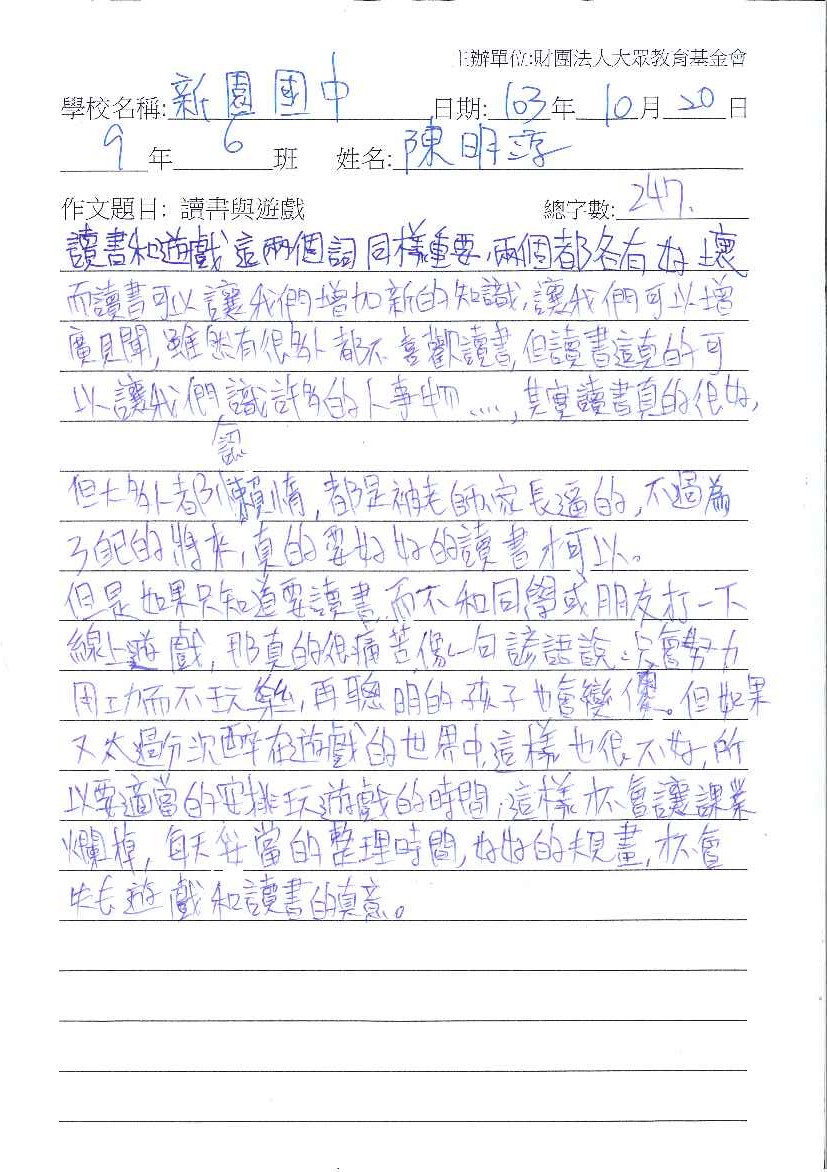 主辦單位:財團法人大眾教育基金會
學校名稱:新園國中 日期:103年10月20日
9年6班 姓名:陳明淳
作文題目: 讀書與遊戲 總字數:247.
讀書和遊戲這兩個詞同樣重要,兩個都各有好壞
而讀書可以讓我們增加新的知識,讓我們可以增
廣見聞,雖然有很多人都不喜歡讀書,但讀書這真的可
以讓我們認識許多的人事物....,其實讀書真的很好,
但大多人都懶惰,都是被老師家長逼的,不過為
了自己的將來,真的要好好的讀書才可以。
但是如果只知道要讀書,而不和同學或朋友打一下
線上遊戲,那真的很痛苦像一句諺語說:只會努力
用功而不玩樂,再聰明的孩子也會變傻。但如果
又太過份沈醉在遊戲的世界中,這樣也很不好,所
以要適當的安排玩遊戲的時間,這樣才不會讓課業
爛掉,每天妥當的整理時間,好好的規畫,才不會
失去遊戲和讀書的真意。